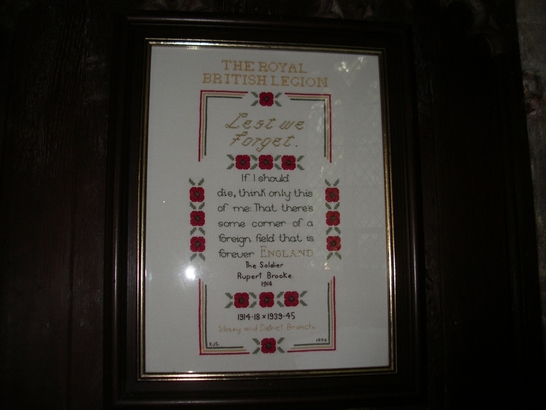 THE ROYAL
BRITISH LEGION
Lest we
forget.
If I should
die, think only this
of me: That there's
some corner of a
foreign field that is
forever ENGLAND
The Soldier
Rupert Brooke
1914
1914-18 * 1939-45
and District Branch